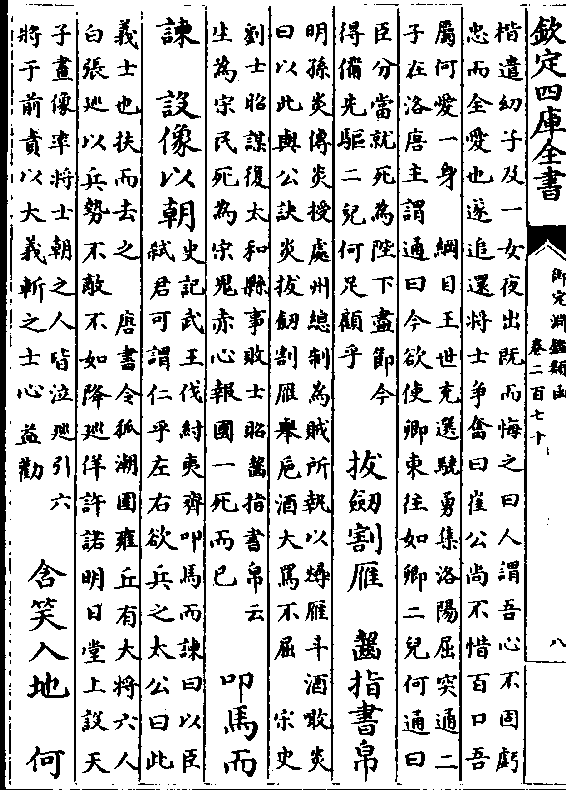 欽定四庫全書
御定淵鑑類函
卷二百七十
八
楷遣幼子及一女夜出既而悔之曰人謂吾心不固虧
忠而全愛也遂追還將士爭奮曰崔公尚不惜百口吾
屬何愛一身 綱目王世充選驍勇集洛陽屈突通二
子在洛唐主謂通曰今欲使卿東往如卿二兒何通曰
臣分當就死為陛下盡節今
得備先驅二兒何足顧乎
拔劒割雁 齧指書帛
明孫炎傳炎授處州總制為賊所執以燖雁斗酒噉炎
曰以此與公訣炎拔劒割雁舉巵酒大罵不屈 宋史
劉士昭謀復太和縣事敗士昭齧指書帛云
生為宋民死為宋鬼赤心報國一死而已
叩馬而
諫 設像以朝
史記武王伐紂夷齊叩馬而諫曰以臣
弑君可謂仁乎左右欲兵之太公曰此
義士也扶而去之 唐書令狐潮圍雍丘有大將六人
白張巡以兵勢不敵不如降巡佯許諾明日堂上設天
子畫像率將士朝之人皆泣巡引六
將于前責以大義斬之士心益勸
含笑入地 何